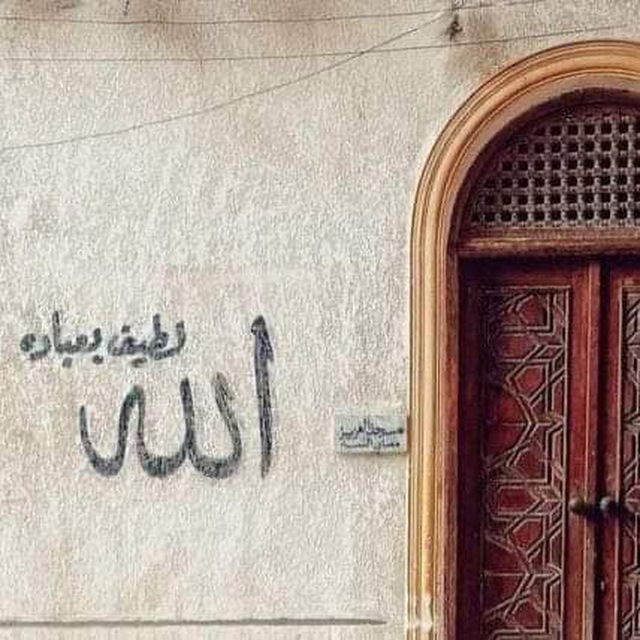 الله
لطيف بعباده